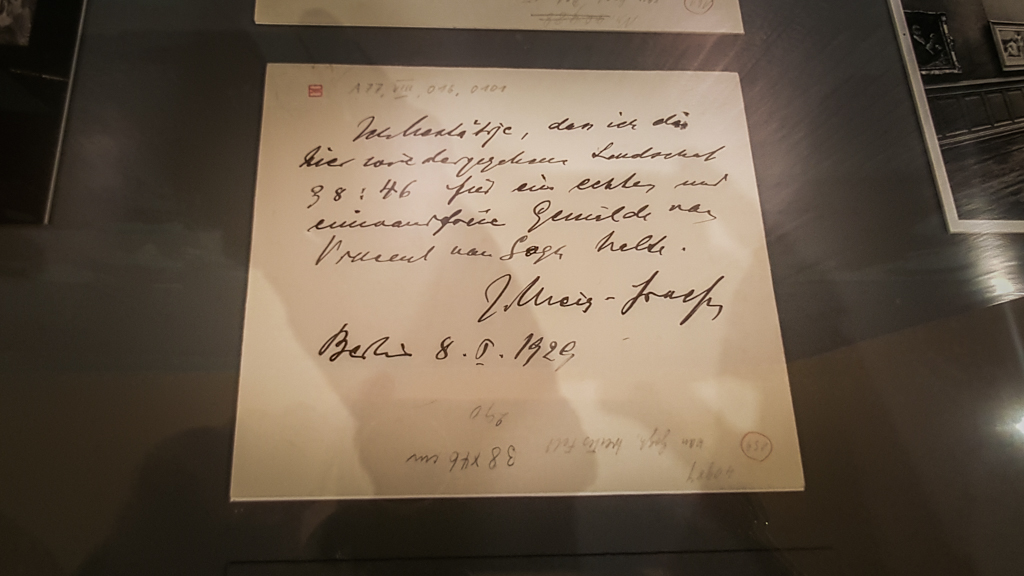 A77, VIII, 016, 0101
Ich bestätige, dass ich die
hier wiedergegebene Landschaft
38 : 46 für ein echtes und
einwandfreie Gemälde von
Vincent van Gogh halte.
J. Meier-Graefe
Berlin 8. I. 1929
390
38 x 46 cm
van Gogh